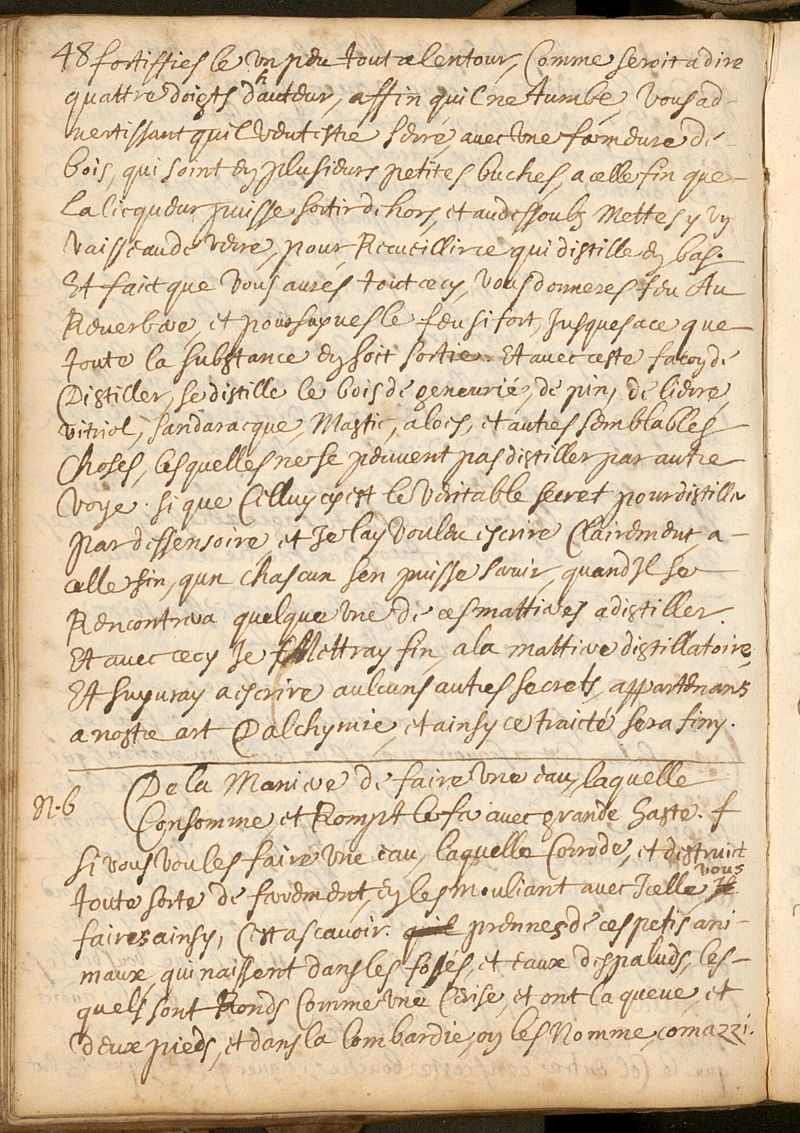 48 fortiffies le un peu tout alentour, Comme seroit a dire
quattre doigts d'hauteur, affin quil ne tumbe, Vous ad-
vertissant quil veut estre serré, avec une fermeure de
bois, qui soint en plusieurs petites buches, a celle fin que
la licqueur puisse sortir dehors, et au dessoubz Mettes y un
Vaisseau de verre, pour Recueillir ce qui distille en bas.
Et faict que Vous aurés tout cecy, Vous donneres feu Au
Reverbere, et poursuyves le feu si fort, Jusques a ce que
toute la substance en soit sortie. Et avec ceste façon de
Distiller, se distille le bois de genevrié, de pin, de lierre,
vitriol, sandaracque, Mastic, aloes, et autres semblables
Choses, lesquelles ne se peuvent pas distiller par autre
Voye. si que Celluy cy est le veritable secret pour distiller
par dessensoire, et Je lay vouleu escrire Clairement, a-
celle fin, qun chascun sen puisse servir, quand Il se
Rencontrera quelque une de ces mattieres a distiller.
Et avec cecy Je Mettray fin, a la mattiere distillatoire,
Et suyvray a escrire aulcuns autres secrets, appartenans
a nostre art D'alchymie, et ainsy ce traicté sera finy.
N.6 De la Maniere de faire Une eau, laquelle
Consomme, et Rompt le fer avec grande haste. f
si vous voules faire une eau, laquelle Corrode, et destruict
toute sorte de ferrement, en les mouliant avec Icelle vous
faires ainsy, C'est a scavoir. quil prennes de ces petis ani-
maux, qui naissent dans les fossés, et eaux des paluds, les-
quels sont Ronds Comme une Cerise, et ont la queue, et
deux pieds, et dans la lombardie, on les Nomme, comazzi.